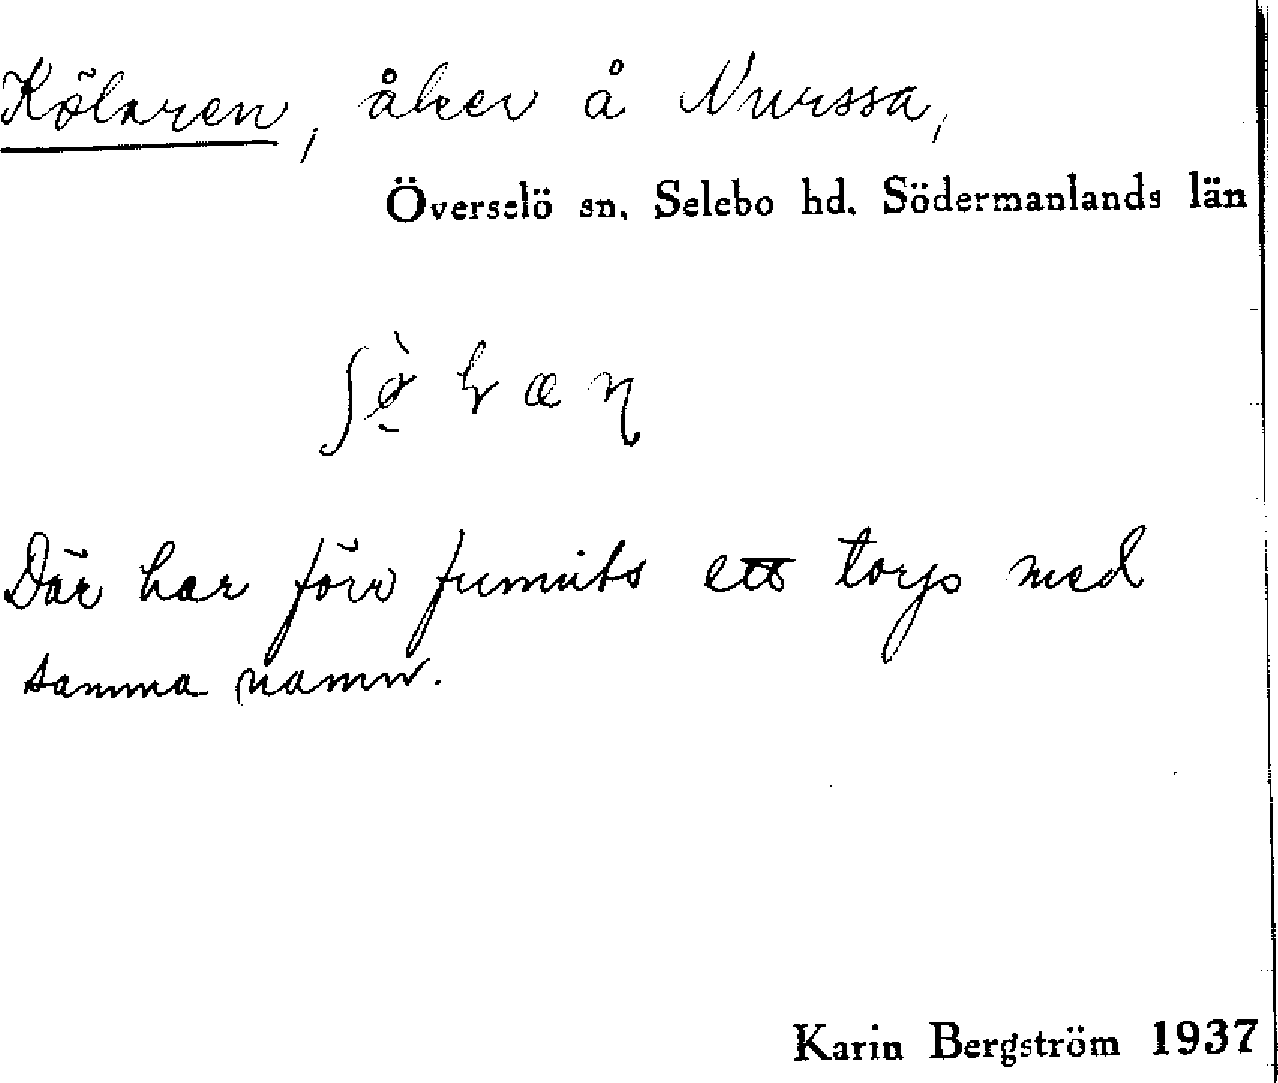 Kölaren, åker å Nurssa,
Överselö sn. Selebo hd. Södermanlands län
Där har förr funnits ett torp med
samma namn.
Karin Bergström 1937